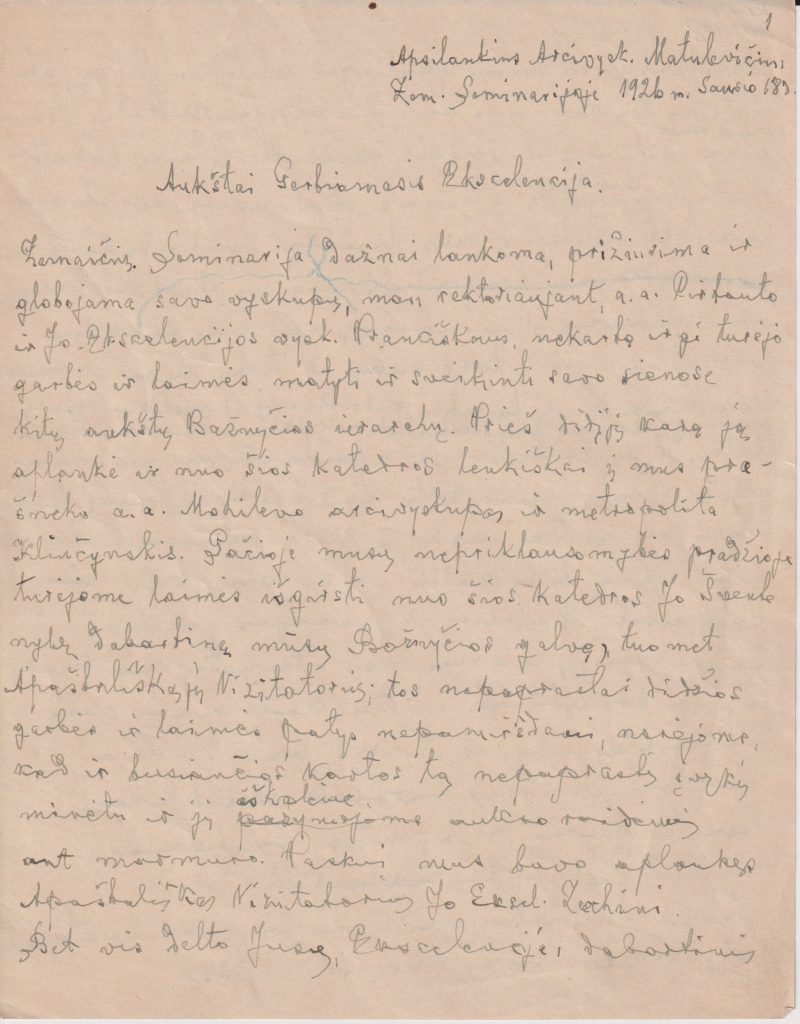 1
Apsilankius Arcivysk. Matulevičiui
Žem. Seminarijoje 1926 m. Sausio 18 d.
Aukštai Gerbiamasis Ekscelencija.
Žemaičių Seminarija dažnai lankoma, prižiurima ir
globojama savo vyskupų, man rektoriaujant, a. a.
ir Jo Ekscelencijos vysk. Pranciškaus, nekartą irgi turėjo
garbės ir laimės matyti ir sveikinti savo sienose
kitų aukštų Bažnyčios ierarchų. Prieš didįjį karą ją
aplankė ir nuo šios katedros lenkiškai į mus pra-
šneko a. a. Mohilevo arcivyskupas ir metropolita
Kliučynskis. Pačioje musų nepriklausomybės pradžioje
turėjome laimės išgirsti nuo šios katedros Jo Švente
nybę dabartinę mūsų Bažnyčios galvą, tuomet
Apaštališkąjį Vizitatorių; tos nepaprastai didžios
garbės ir laimės patys nepamiršdami, norėjome,
kad ir busiančios kartos tą nepaprastą įvykį
minėtu ir jį iškalėme aukso raidėmis
ant marmuro. Paskui mus buvo aplankęs
Apaštališkas Vizitatorius Jo Eksel. Zechini.
Bet vis delto Jusų, Ekscelencija, dabartinis